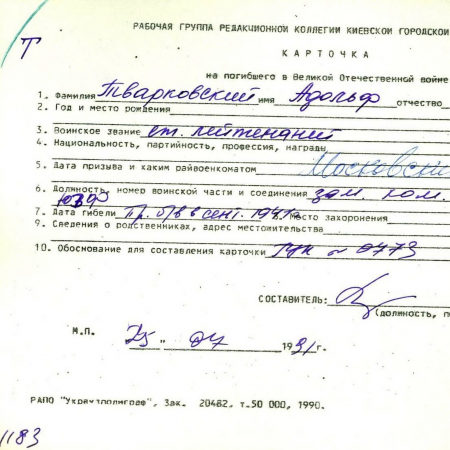 Т
РАБОЧАЯ ГРУППА РЕДАКЦИОННОЙ КОЛЛЕГИИ КИЕВСКОЙ ГОРОДСКОЙ
КАРТОЧКА
на погибшего в Великой Отечественной войне
1. Фамилия Тварковский имя Адольф отчество
2. Год и место рождения
3. Воинское звание ст. лейтенант
4. Национальность, партийность, профессия, награды
5. Дата призыва и каким райвоенкоматом Московски
6. Должность, номер воинской части и соединения зам. ком.
ЮЗФ
7. Дата гибели Пр. б/в в сент. 1941г. место захоронения
9. Сведения о родственниках, адрес местожительства
10. Обоснование для составления карточки 0473
СОСТАВИТЕЛЬ:
(должность, п
М.П. 25 " 04 1991г.
РАПО "Укрвузполиграф", Зак. 20482, т.50 000, 1990.
1183